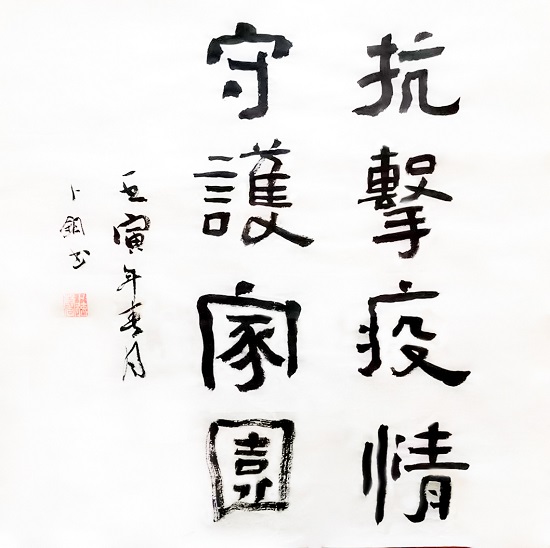 抗擊疫情
守護家園
壬寅年春月
卜銅书